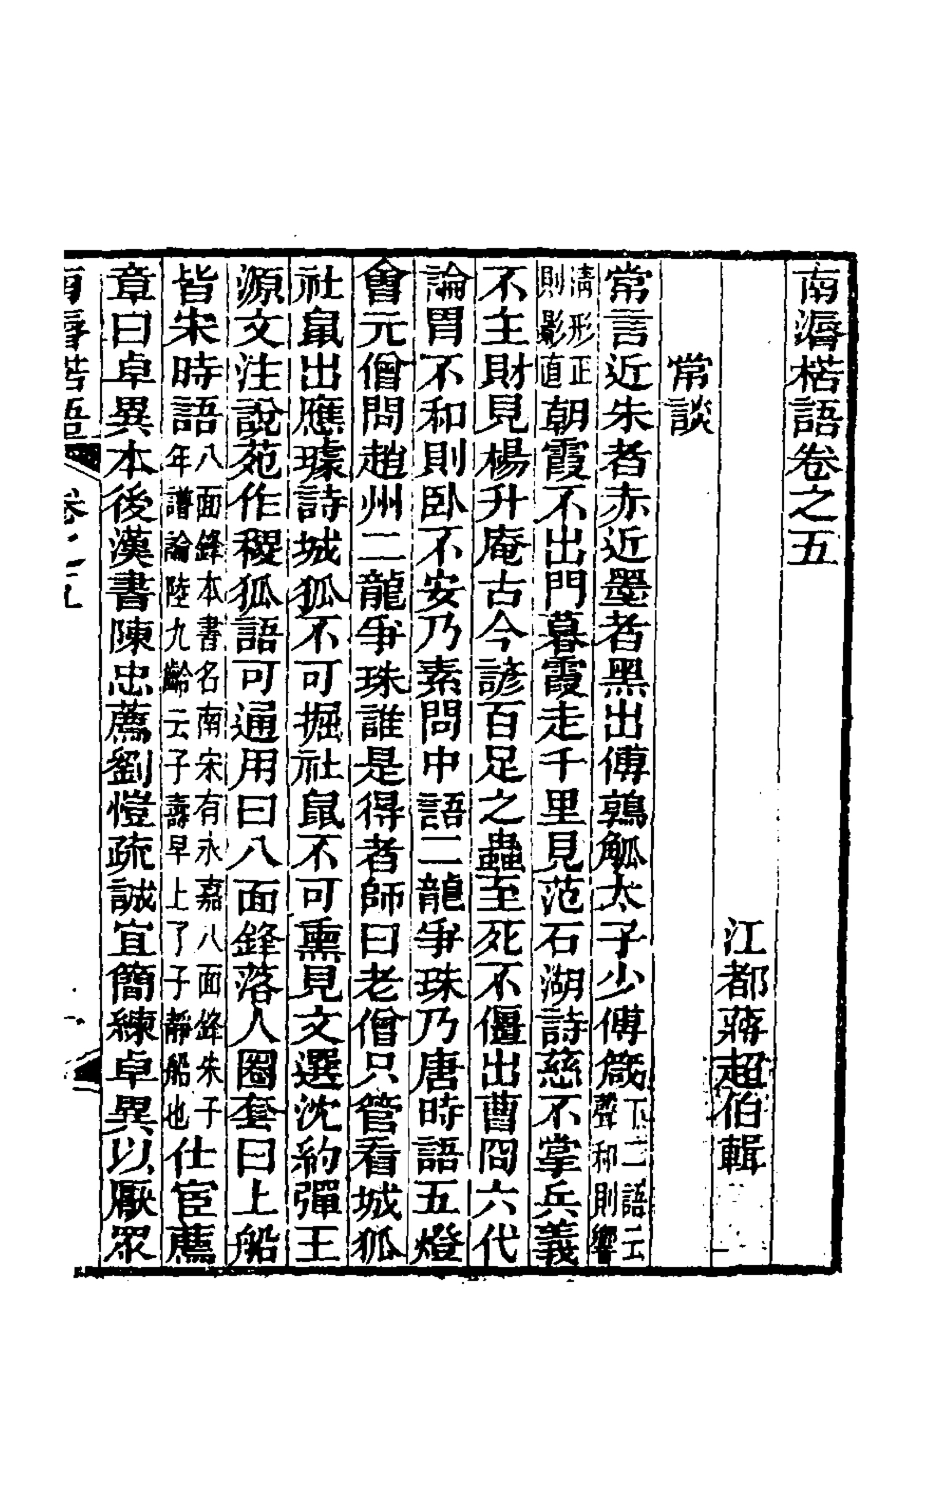 南漘楛語卷之五
江都蔣超伯輯
常談
常言近朱者赤近墨者黑出傅鶉觚太子少傅箴下二語云聲和則響
清形正則影直朝霞不出門暮霞走千里見范石湖詩慈不掌兵義
不主財見楊升庵古今諺百足之蟲至死不僵出曹冏六代
論胃不和則卧不安乃素問中語二龍爭珠乃唐時語五燈
會元僧問趙州二龍爭珠誰是得者師曰老僧只管看城狐
社鼠出應璩詩城狐不可掘社鼠不可熏見文選沈約彈王
源文注說苑作稷狐語可通用曰八面鋒落人圈套曰上船
皆宋時語八面鋒本書名南宋有永嘉八面鋒朱子年譜論陸九齡云子壽早上了子靜船也仕宦薦
章曰卓異本後漢書陳忠薦劉愷疏誠宜簡練卓異以厭眾
南漘楛語 卷之五